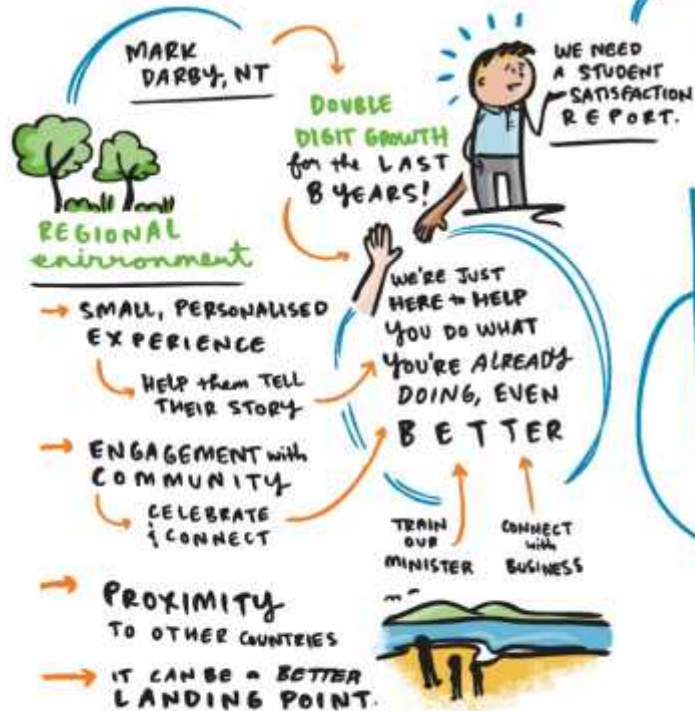 MARK
DARBY, NT
DOUBLE
DIGIT GROWTH
for the LAST
8 YEARS!
WE NEED
A STUDENT
SATISFACTION
REPORT.
REGIONAL
enirronment
SMALL, PERSONALISED
EXPERIENCE
HELP them TELL
THEIR STORY
ENGAGEMENT with
COMMUNITY
CELEBRATE
& CONNECT
PROXIMITY
TO OTHER COUNTRIES
IT CAN BE a BETTER
LANDING POINT.
WE'RE JUST
HERE to HELP
YOU DO WHAT
YOU'RE ALREADY
DOING, EVEN
BETTER
TRAIN
OUR
MINISTER
CONNECT
with
BUSINESS